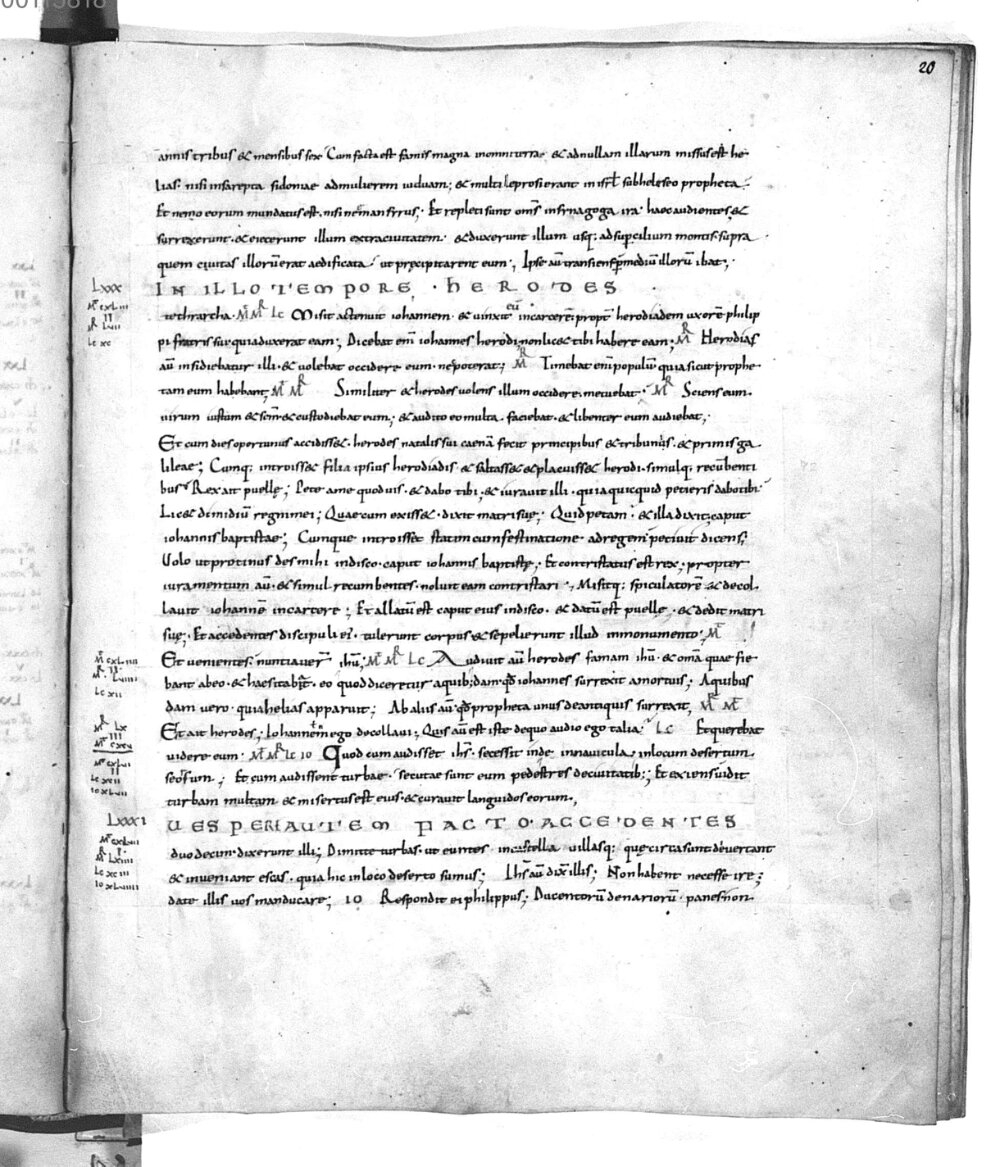 20
annis tribus & mensibus sex Cum facta est famis magna in omni terrae & ad nullam illarum missus est he
lias. nisi in sarepta sidoniae ad mulierem uiduam; & multi leprosi erant in isrł sub heliseo propheta.
Et nemo eorum mundatus est. nisi neman syrus; Et repleti sunt oms̄ in synagoga ira. haec audientes. &
surrexerunt. & eiecerunt illum extra ciuitatem. & duxerunt illum usq; ad supercilium montis. supra
quem ciuitas illorū erat aedificata. ut precipitarent eum; Ipse aū transiens p mediū illorū ibat;
Lxxx IN ILLO TEMPORE. HERODES
tethrarcha. MT MR LC Misit ac tenuit iohannem. & uinxit eū in carcerē. propt̄ herodiadem uxorē philip
pi fratris sui. quia duxerat eam; Dicebat em̄ iohannes herodi. non lic& tibi habere eam; MR Herodias
aū insidiebatur illi. & uolebat occidere eum. nec poterat; MR Timebat em̄ populū quia sicut prophe
tam eum habebant; MT MR Similiter & herodes uolens illum occidere. metuebat. MR Sciens eum.
uirum iustum & scm̄ & custodiebat eum; & audito eo multa faciebat. & libenter eum audiebat;
Et cum dies oportunus accidiss&. herodes natalis sui caenā fecit principibus & tribunis. & primis ga
lileae; Cumq; introiss& filia ipsius herodiadis & saltass& & placuiss& herodi. simulq; recūbenti
bus Rex ait puellę; Pete a me quod uis. & dabo tibi; & iurauit illi. quia quicquid petieris dabo tibi
Lic& dimidiū regni mei; Quae cum exiss&. dixit matri suę; Quid petam. & illa dixit; caput
iohannis baptistae; Cumque introisset statim cum festinatione. ad regem petiuit dicens;
Uolo ut protinus des mihi in disco. caput iohannis baptistę; Et contristatus est rex; propter
iuramentum aū. & simul recumbentes. noluit eam contristari; Misitq; spiculatorē & decol
lauit iohannē in carcere; Et allatū est caput eius in disco. & datū est puellę. & dedit matri
suę; Et accedentes discipuli ei. tulerunt corpus & sepelierunt illud in monumento; MT
Et uenientes. nuntiauer̄ ihū; MT MR LC Audiuit aū herodes famam ihū & omā quae fie
bant ab eo. & haesitabat. eo quod diceretur a quibusdam. qđ iohannes surrexit a mortuis; A quibus
dam uero. quia helias apparuit; Ab aliis aū. qđ propheta unus de antiquis surrexit; MR MT
Et ait herodes; Iohannem ego decollaui; Quis aū est iste de quo audio ego talia. LC Et querebat
uidere eum. MT MR LC IO Quod cum audisset ihs. secessit inde in nauicula. in locum desertum
seorsum; Et cum audissent turbae. secutae sunt eum pedestres de ciuitatib; Et exiens uidit
turbam multam & misertus est eius. & curauit languidos eorum;
Lxxxi UESPERE AUTEM FACTO. ACCEDENTES
duodecim. dixerunt illi; Dimitte turbas. ut euntes in castella uillasq; quę circa sunt deuertant
& inueniant escas. quia hic in loco deserto sumus; Ihs aū dix illis; Non habent necesse ire;
date illis uos manducare; IO Respondit ei philippus; Ducentorū denariorū. panes non